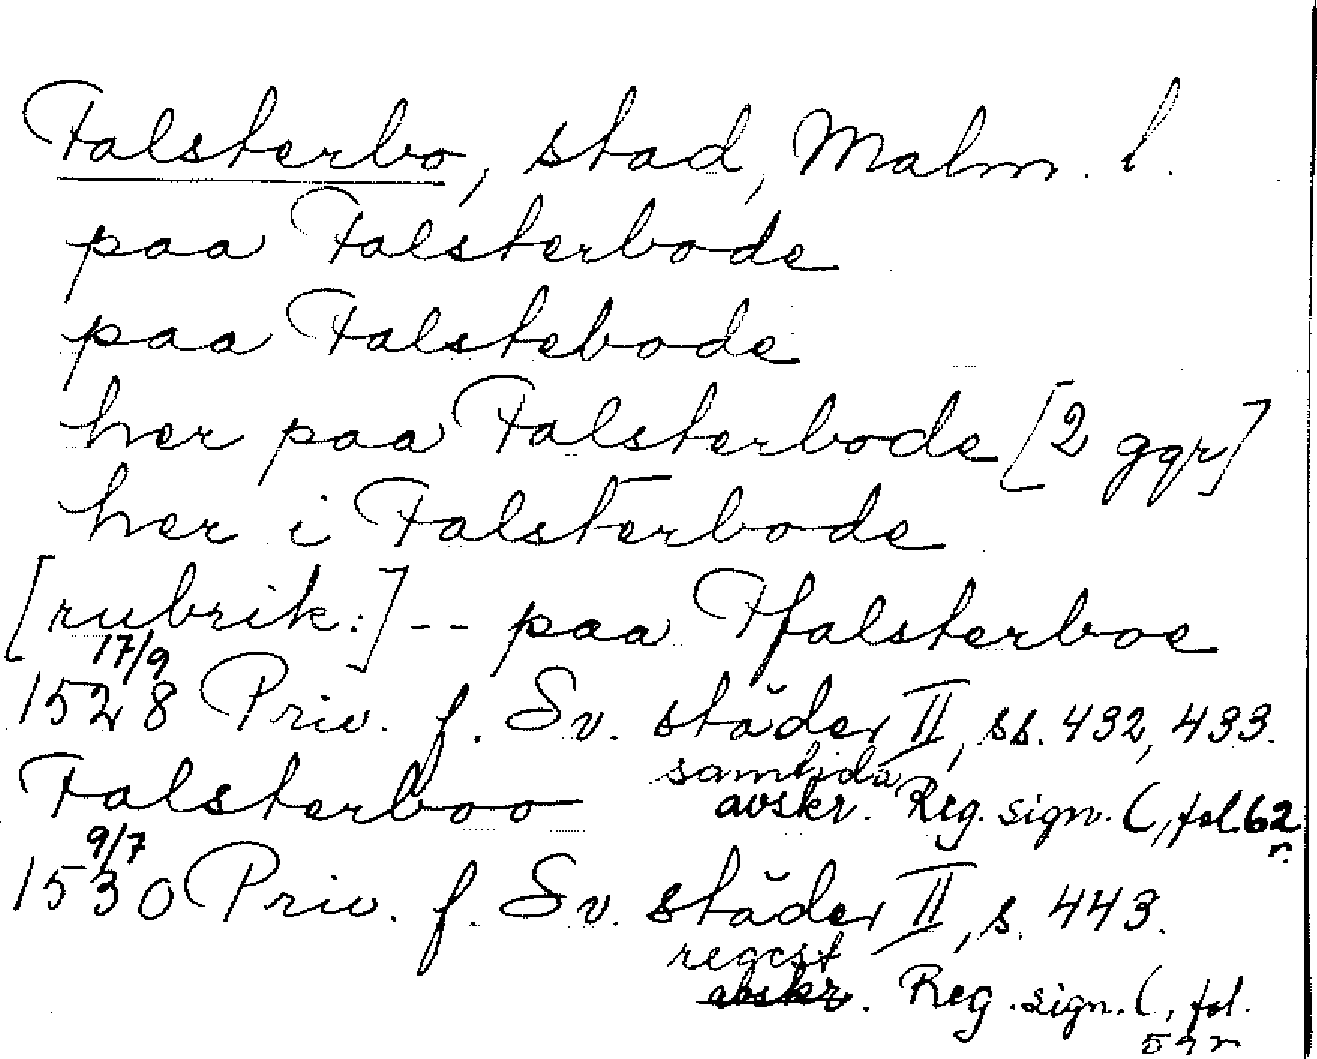 Falsterbo, stad, Malm. l.
paa Falsterbode
paa Falstebode
her paa Falsterbode [2 ggr]
her i Falsterbode
[rubrik:] -- paa Ffalsterboe
17/9
1528 Priv. f. Sv. städer II, ss. 432, 433.
samtida
Falsterboo avskr. Reg. sign. C, fol 62 r.
9/7
1530 Priv. f. Sv. städer II, s. 443.
regest
avskr. Reg. sign. C, fol.